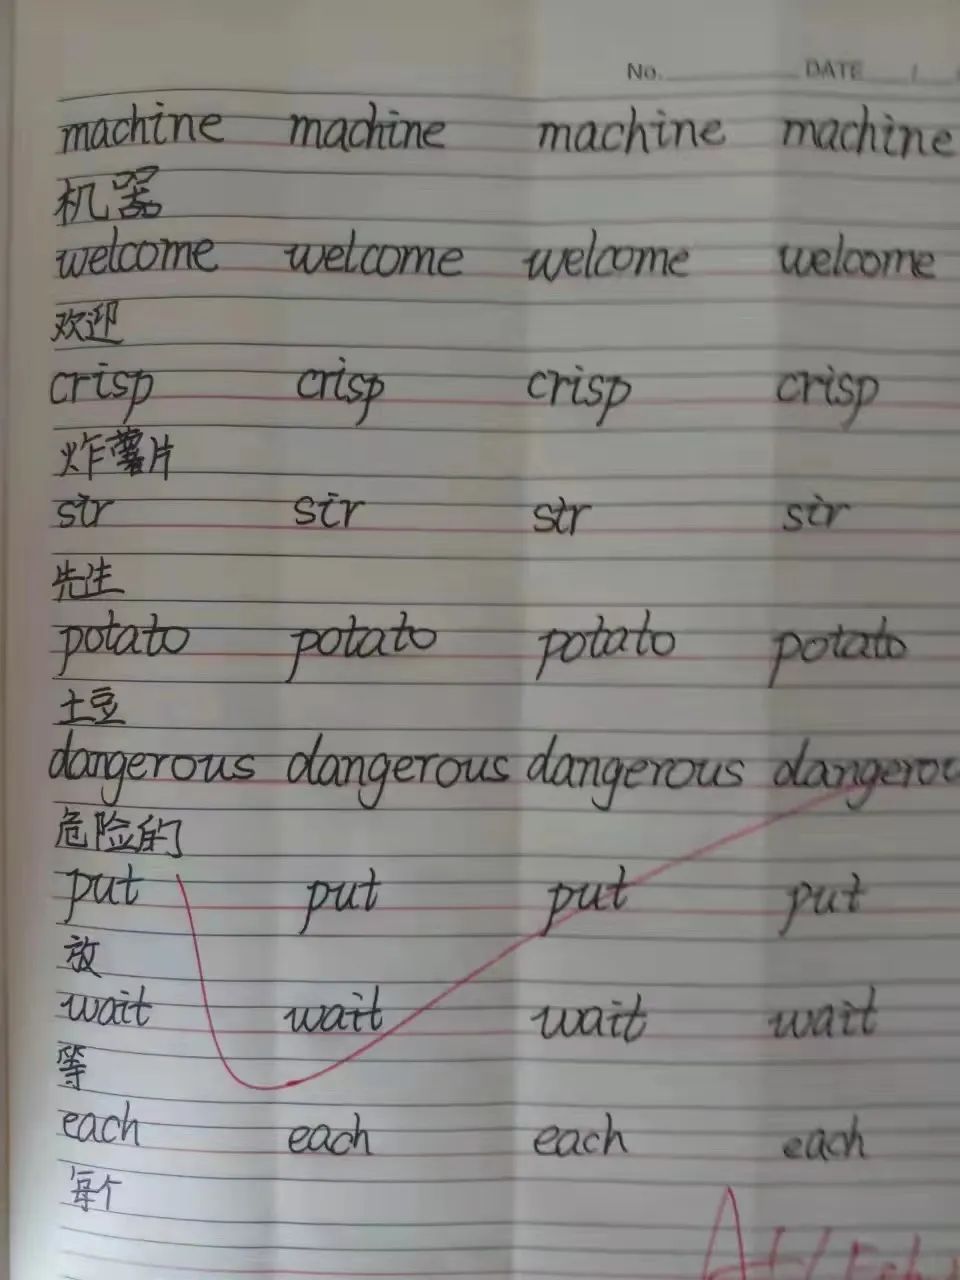 No. DATE /
machine machine machine machine
机器
welcome welcome welcome welcome
欢迎
crisp crisp crisp crisp
炸薯片
str str str str
先生
potato potato potato potato
土豆
dangerous dangerous dangerous dangerou
危险的
put put put put
放
wait wait wait wait
等
each each each each
每个
A+